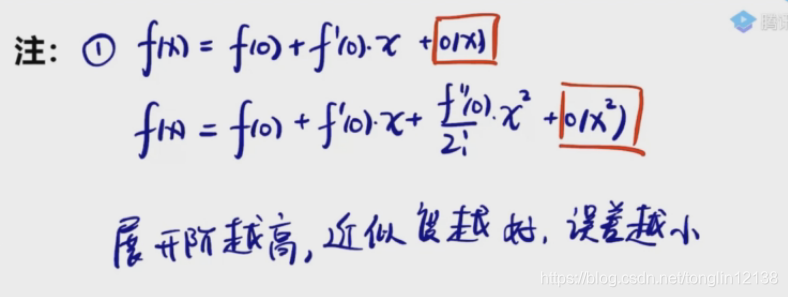 注: ① f(x) = f(0) + f'(0)·x + o(x)
f(x) = f(0) + f'(0)·x + f''(0)/2!·x² + o(x²)
展开阶越高, 近似度越好, 误差越小
https://blog.csdn.net/tonglin12138